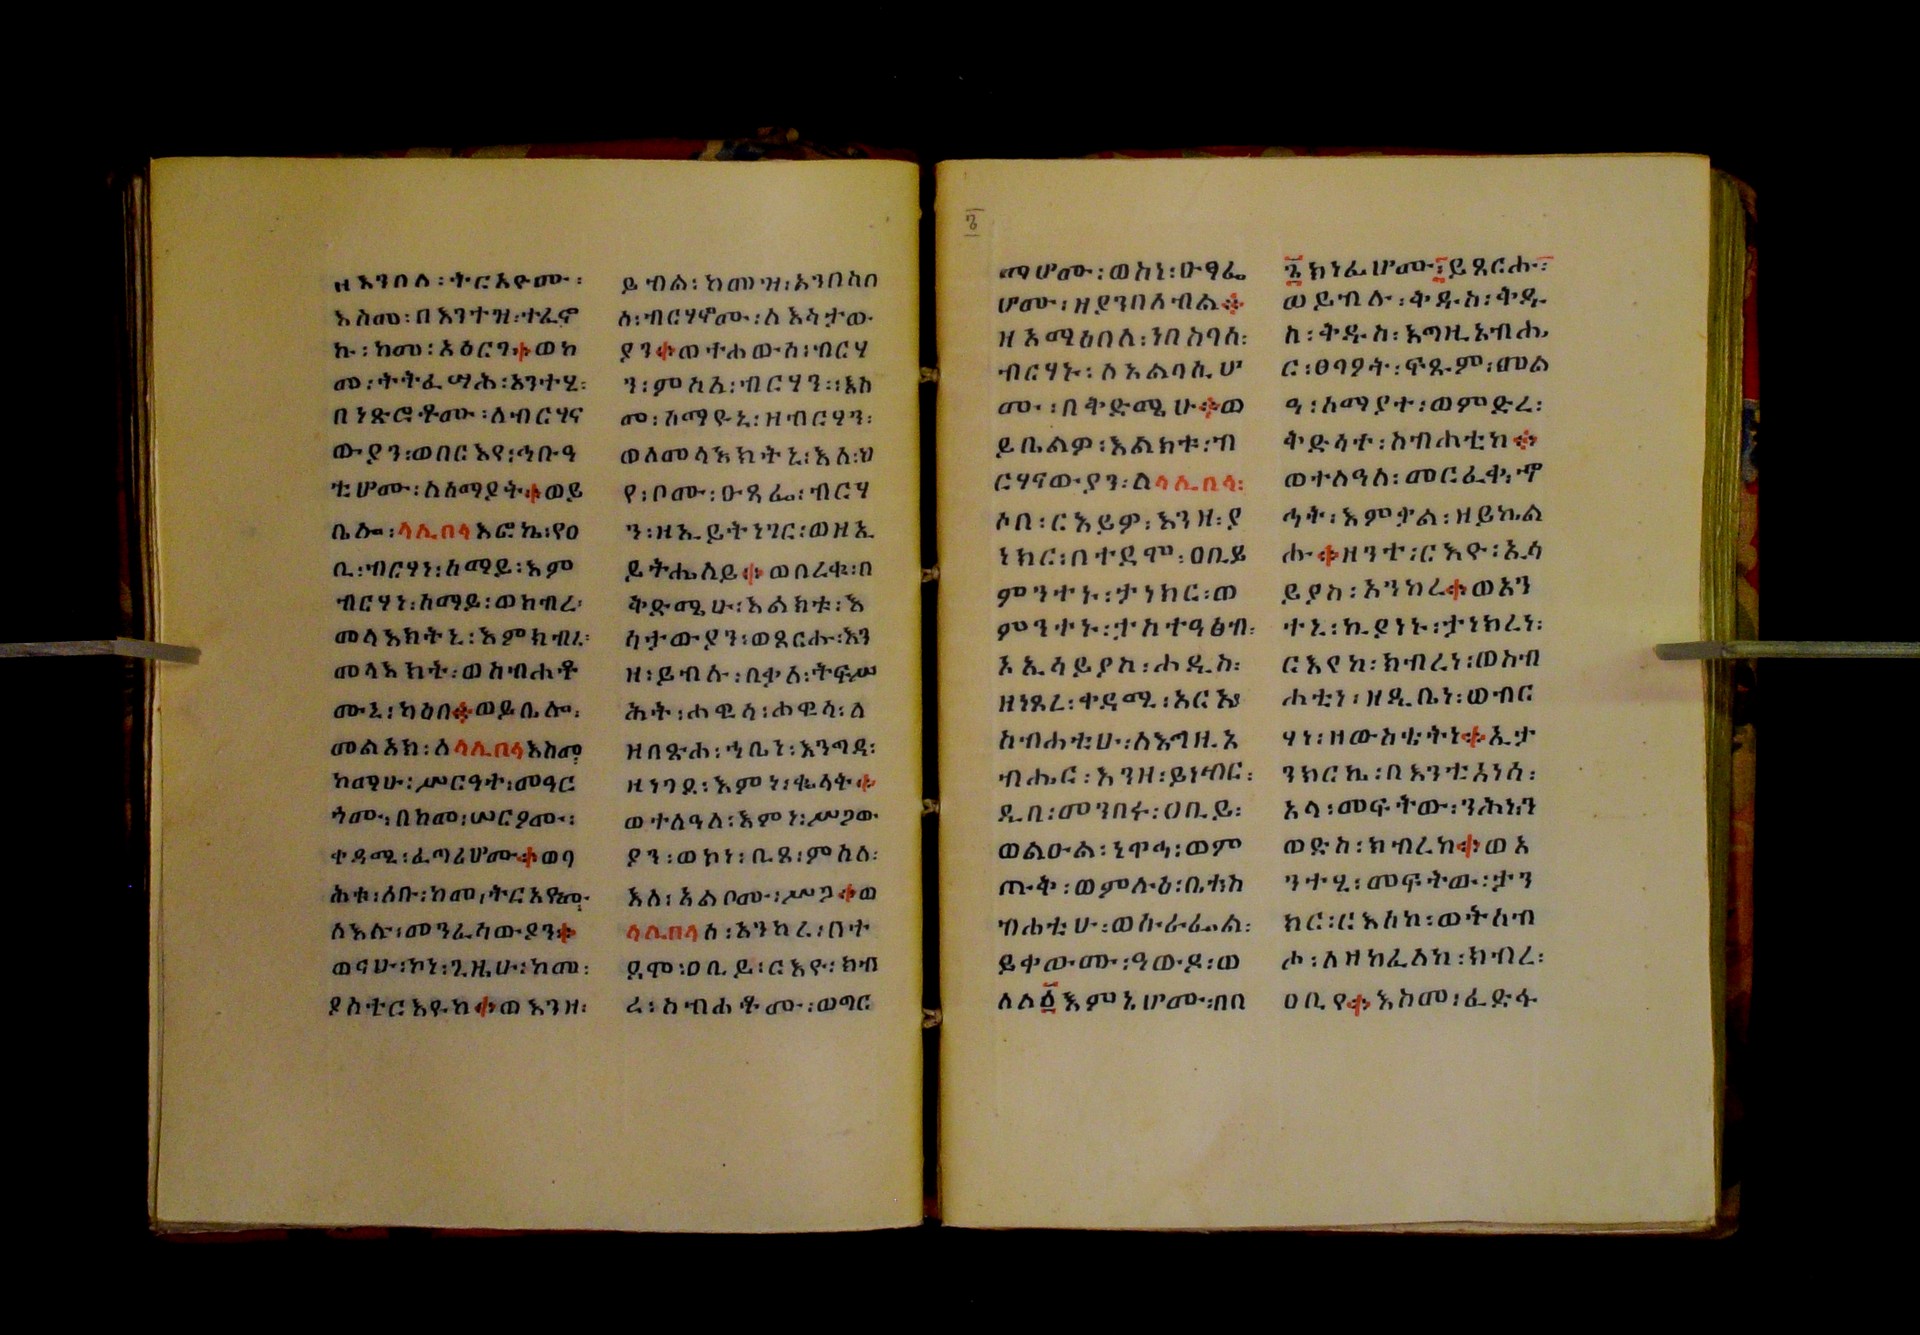 ዘእንበለ፡ትርአዮሙ፡
እስመ፡በእንተዝ፡ተፈኖ
ኩ፡ከመ፡አዕርግ፨ወከ
መ፡ትትፈሣሕ፡አንተሂ፡
በነጽሮቶሙ፡ለብርሃና
ውያን፡ወበርእየ፡ኅቡዓ
ቲሆሙ፡ለሰማያት፨ወይ
ቤሎ፡ላሊበላእፎኬ፡የዐ
ቢ፡ብርሃነ፡ሰማይ፡እም
ብርሃነ፡ሰማይ፡ወክብረ፡
መላእክትኒ፡እምክብረ፡
መላእክት፡ወስብሐቶ
ሙኒ፡ካዕበ፨ወይቤሎ፡
መልአክ፡ለላሊበላእስመ
ከማሁ፡ሥርዓተ፡መዓር
ጎሙ፡በከመ፡ሠርዖሙ፡
ቀዳሚ፡ፈጣሪሆሙ፨ወባ
ሕቱ፡ሰቡ፡ከመ፡ትርአዮሙ
ለእሉ፡መንፈሳውያን፨
ወናሁ፡ኮነ፡ጊዜሁ፡ከመ፡
ያስተርእዩከ፨ወእንዘ፡
ይብል፡ከመዝ፡አንበስበ
ሰ፡ብርሃኖሙ፡ለእሳታው
ያን፨ወተሐውሰ፡ብርሃ
ን፡ምስለ፡ብርሃን፡፡እስ
መ፡ሰማዮኒ፡ዘብርሃን፡
ወለመላእክትኒ፡እለ፡ህ
የ፡ቦሙ፡ዑጻፌ፡ብርሃ
ን፡ዘኢይትነገር፡ወዘኢ
ይትሔለይ፨ወበረቁ፡በ
ቅድሜሁ፡እልክቱ፡እ
ሳታውያን፡ወጸርሑ፡እን
ዘ፡ይብሉ፡በቃለ፡ትፍሥ
ሕት፡ሐዊሳ፡ሐዊሳ፡ለ
ዘበጽሐ፡ኀቤነ፡እንግዳ፡
ዘነገደ፡እምነ፡ቈላት፨
ወተለዓለ፡እምነ፡ሥጋው
ያን፡ወኮነ፡ቢጸ፡ምስለ፡
እለ፡አልቦሙ፡ሥጋ፨ወ
ላሊበላሰ፡አንከረ፡በተ
ደሞ፡ዐቢይ፡ርእዮ፡ክብ
ረ፡ስብሐቶሙ፡ወግር
ማሆሙ፡ወስነ፡ዑፃፌ
ሆሙ፡ዘያንበለብል፨
ዘእሜዕበለ፡ነበስባሰ፡
ብርሃኑ፡ለአልባሲሆ
ሙ፡በቅድሜሁ፨ወ
ይቤልዎ፡እልክቱ፡ብ
ርሃናውያን፡ለላሊበላ፡
ሶበ፡ርእይዎ፡እንዘ፡ያ
ነክር፡በተደሞ፡ዐቢይ
ምንተኑ፡ታነክር፡ወ
ምንተኑ፡ታስተዓፅብ፡
ኦኢሳይያስ፡ሐዲስ፡
ዘነጸረ፡ቀዳሚ፡አርአያ
ስብሐቲሁ፡ለእግዚአ
ብሔር፡እንዘ፡ይነብር፡
ዲበ፡መንበሩ፡ዐቢይ፡
ወልዑል፡ኒዋኅ፡ወም
ጡቅ፡ወምሉዕ፡ቤተ፡ስ
ብሐቲሁ፡ወሱራፌል፡
ይቀውሙ፡ዓውዶ፡ወ
ለለ፩እምኒሆሙ፡በበ
፮ክነፊሆሙ፡ይጸርሑ፡
ወይብሉ፡ቅዱስ፡ቅዱ
ስ፡ቅዱስ፡እግዚአብሔ
ር፡ፀባዖት፡ፍጹም፡ምል
ዓ፡ሰማያተ፡ወምድረ፡
ቅድሳተ፡ስብሐቲከ፨
ወተለዓለ፡መርፈቀ፡ኆ
ኅት፡እምቃል፡ዘይኬል
ሑ፨ዘንተ፡ርእዮ፡ኢሳ
ይያስ፡አንከረ፨ወአን
ተኒ፡ኪያነኑ፡ታነክረነ፡
ርእየከ፡ክብረነ፡ወስብ
ሐቲነ፡ዘዲቤነ፡ወብር
ሃነ፡ዘውስቴትነ፨ኢታ
ንክርኬ፡በእንቲአነሰ፡
አላ፡መፍትው፡ንሕነ፡ን
ወድስ፡ክብረከ፨ወአ
ንተሂ፡መፍትው፡ታን
ክር፡ርእሰከ፡ወትሰብ
ሖ፡ለዘከፈለከ፡ክብረ፡
ዐቢየ፨እስመ፡ፈድፋ